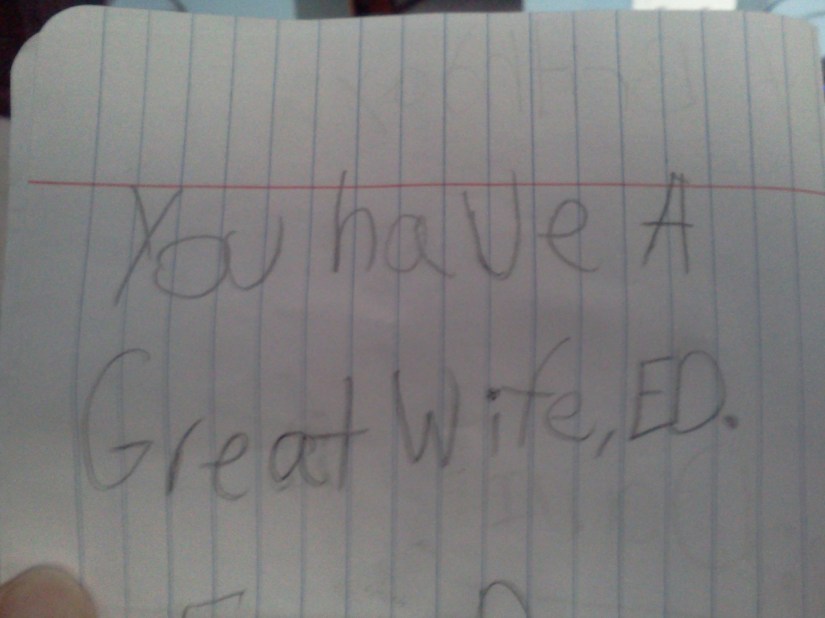 You have A
Great Wife, ED.